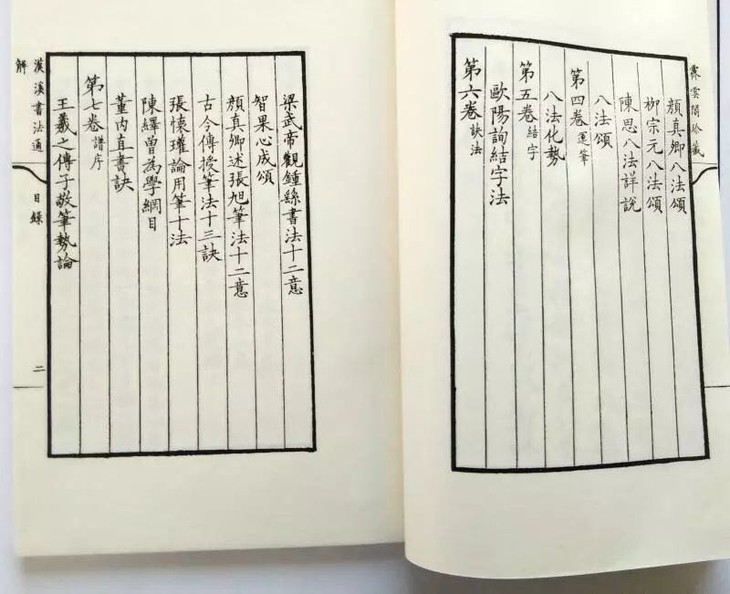 霽雲閣珍藏
顏真卿八法頌
柳宗元八法頌
陳思八法詳說
八法頌
第四卷 運筆
八法化勢
第五卷 結字
歐陽詢結字法
第六卷 訣法
梁武帝觀鍾繇書法十二意
智果心成頌
顏真卿述張旭筆法十二意
古今傳授筆法十三訣
張懷瓘論用筆十法
陳繹曾為學綱目
董內直書訣
第七卷 譜序
王羲之傳子敬筆勢論
漢溪書法通解
目錄
二